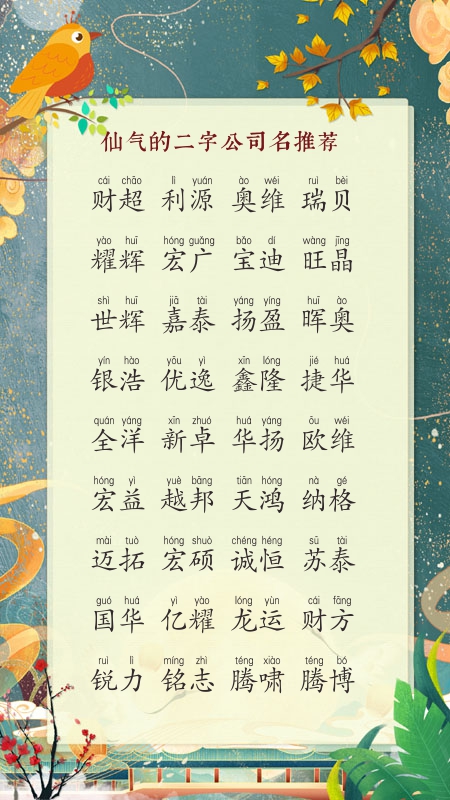 仙气的二字公司名推荐
cái chāo lì yuán ào wéi ruì bèi
财超 利源 奥维 瑞贝
yào huī hóng guǎng bǎo dí wàng jīng
耀辉 宏广 宝迪 旺晶
shì huī jiā tài yáng yíng huī ào
世辉 嘉泰 扬盈 晖奥
yín hào yōu yì xīn lóng jié huá
银浩 优逸 鑫隆 捷华
quán yáng xīn zhuó huá yáng ōu wéi
全洋 新卓 华扬 欧维
hóng yì yuè bāng tiān hóng nà gé
宏益 越邦 天鸿 纳格
mài tuò hóng shuò chéng héng sū tài
迈拓 宏硕 诚恒 苏泰
guó huá yì yào lóng yùn cái fāng
国华 亿耀 龙运 财方
ruì lì míng zhì téng xiào téng bó
锐力 铭志 腾啸 腾博